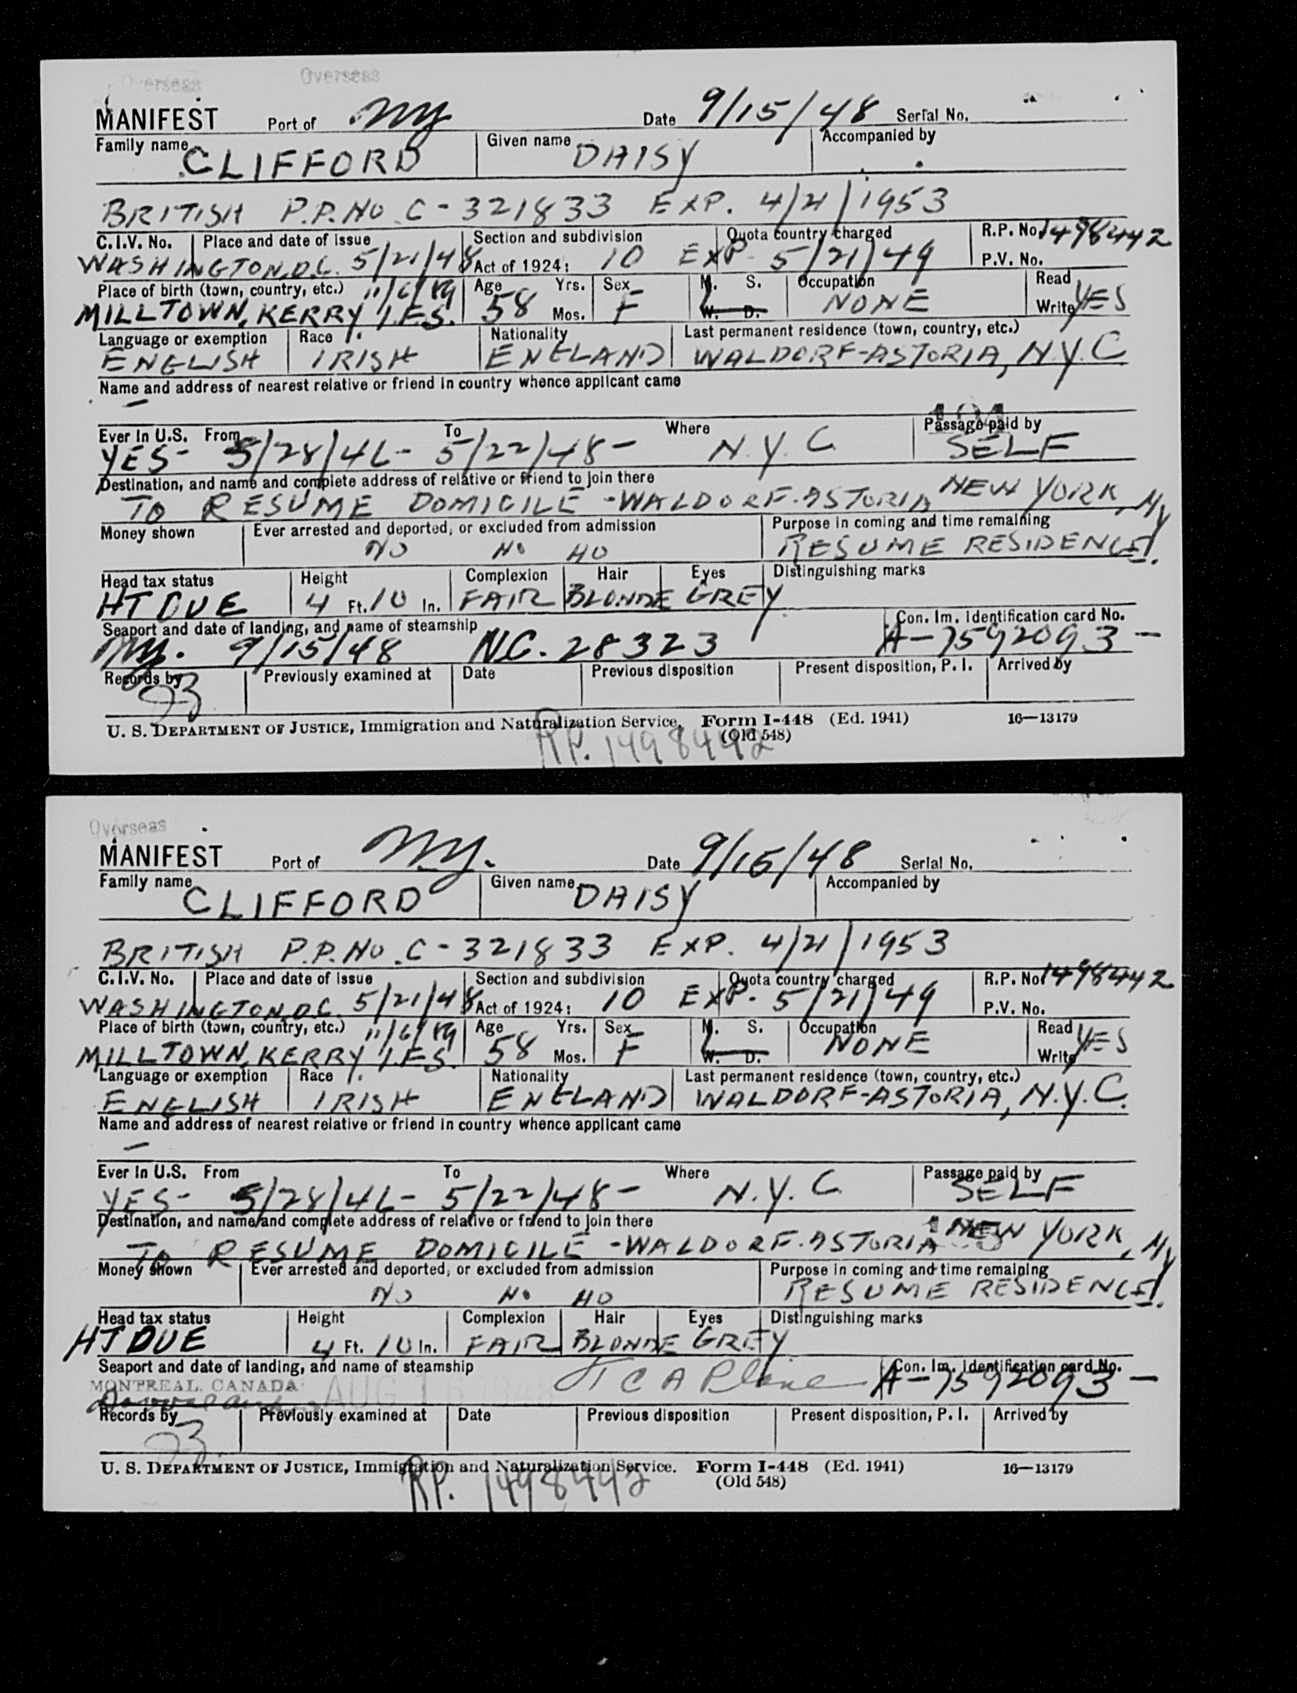 Overseas Overseas
MANIFEST Port of N.Y. Date 9/15/48 Serial No.
Family name CLIFFORD Given name DAISY Accompanied by
BRITISH P.P. NO. C-321833 EXP. 4/21/1953
C.I.V. No. Place and date of issue Section and subdivision Quota country charged R.P. No. 1498442
WASHINGTON, D.C. 5/21/48 Act of 1924: 10 EXP. 5/21/49 P.V. No.
Place of birth (town, country, etc.) 11/6/89 Age Yrs. Sex M. S. Occupation Read
MILLTOWN, KERRY, I.F.S. 58 Mos. F W. D. NONE Write YES
Language or exemption Race Nationality Last permanent residence (town, country, etc.)
ENGLISH IRISH ENGLAND WALDORF-ASTORIA, N.Y.C.
Name and address of nearest relative or friend in country whence applicant came
—
Ever in U.S. From To Where Passage paid by
YES - 5/28/46 - 5/22/48 - N.Y.C. SELF
Destination, and name and complete address of relative or friend to join there
TO RESUME DOMICILE - WALDORF-ASTORIA NEW YORK, NY
Money shown Ever arrested and deported, or excluded from admission Purpose in coming and time remaining
NO NO NO RESUME RESIDENCE
Head tax status Height Complexion Hair Eyes Distinguishing marks
HT DUE 4 Ft. 10 In. FAIR BLONDE GREY
Seaport and date of landing, and name of steamship Con. Im. identification card No.
N.Y. 9/15/48 N.C. 28323 A-7592093 -
Records by Previously examined at Date Previous disposition Present disposition, P. I. Arrived by
U. S. DEPARTMENT OF JUSTICE, Immigration and Naturalization Service. Form I-448 (Ed. 1941) 16—13179
(Old 548)
RP. 1498442
Overseas
MANIFEST Port of N.Y. Date 9/15/48 Serial No.
Family name CLIFFORD Given name DAISY Accompanied by
BRITISH P.P. NO. C-321833 EXP. 4/21/1953
C.I.V. No. Place and date of issue Section and subdivision Quota country charged R.P. No. 1498442
WASHINGTON, D.C. 5/21/48 Act of 1924: 10 EXP. 5/21/49 P.V. No.
Place of birth (town, country, etc.) 11/6/89 Age Yrs. Sex M. S. Occupation Read
MILLTOWN, KERRY, I.F.S. 58 Mos. F W. D. NONE Write YES
Language or exemption Race Nationality Last permanent residence (town, country, etc.)
ENGLISH IRISH ENGLAND WALDORF-ASTORIA, N.Y.C.
Name and address of nearest relative or friend in country whence applicant came
—
Ever in U.S. From To Where Passage paid by
YES - 5/28/46 - 5/22/48 - N.Y.C. SELF
Destination, and name and complete address of relative or friend to join there
TO RESUME DOMICILE - WALDORF-ASTORIA NEW YORK, NY
Money shown Ever arrested and deported, or excluded from admission Purpose in coming and time remaining
NO NO NO RESUME RESIDENCE
Head tax status Height Complexion Hair Eyes Distinguishing marks
HT DUE 4 Ft. 10 In. FAIR BLONDE GREY
Seaport and date of landing, and name of steamship Con. Im. identification card No.
MONTREAL, CANADA AUG TCA Plane A-7592093 -
Records by Previously examined at Date Previous disposition Present disposition, P. I. Arrived by
U. S. DEPARTMENT OF JUSTICE, Immigration and Naturalization Service. Form I-448 (Ed. 1941) 16—13179
(Old 548)
RP. 1498442